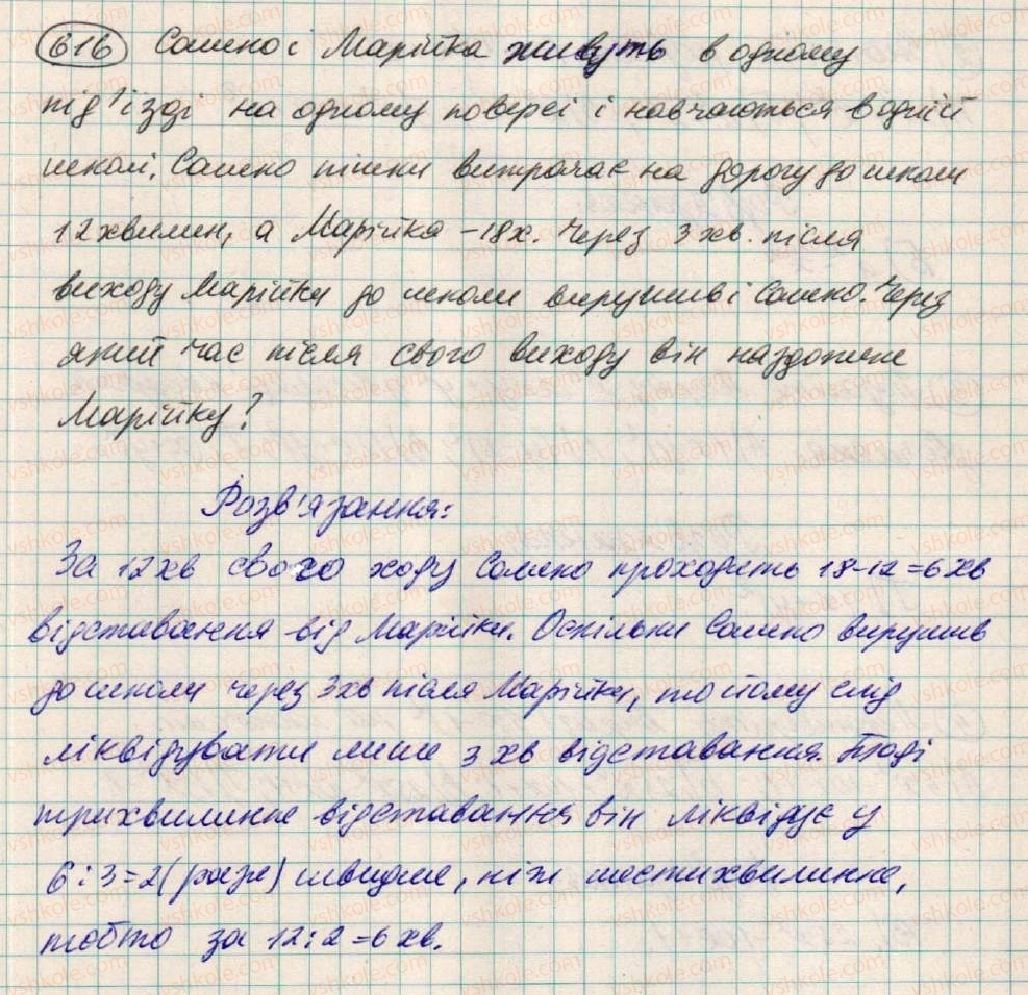 616 Сашко і Марійка живуть в одному
під'їзді на одному поверсі і навчаються в одній
школі. Сашко пішки витрачає на дорогу до школи
12 хвилин, а Марійка - 18х. Через 3 хв. після
виходу Марійки до школи вирушив і Сашко. Через
який час після свого виходу він наздожене
Марійку?
Розв'язання:
За 12 хв свого ходу Сашко проходить 18-12=6 хв
відставання від Марійки. Оскільки Сашко вирушив
до школи через 3 хв після Марійки, то йому слід
ліквідувати лише 3 хв відставання. Тоді
трихвилинне відставання він ліквідує у
6:3=2 (рази) швидше, ніж шестихвилинне,
тобто за 12:2=6 хв.